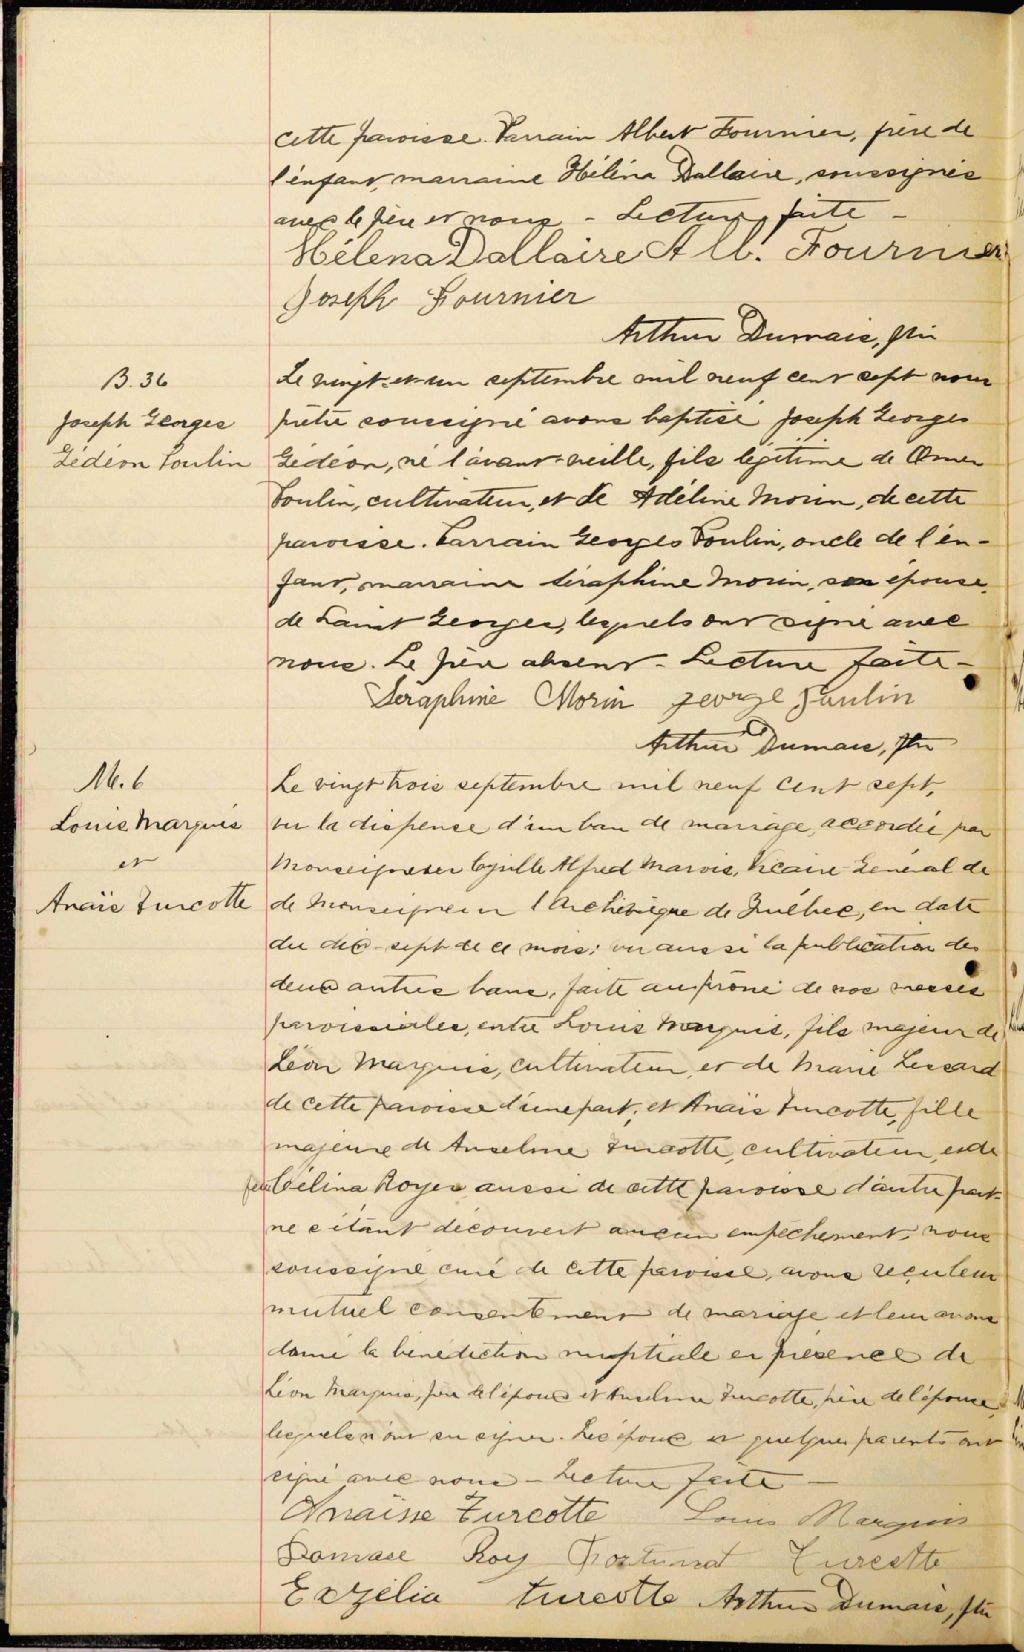 cette paroisse. Parrain Albert Fournier, frère de
l'enfant, marraine Hélèna Dallaire, soussignés
avec le père et nous - Lecture faite -
Hélena Dallaire Alb. Fournier
Joseph Fournier
Arthur Dumais, ptre
B. 36
Joseph Georges
Gédéon Poulin
Le vingt-et-un septembre mil neuf cent sept nous
prêtre soussigné avons baptisé Joseph Georges
Gédéon, né l'avant-veille, fils légitime de Omer
Poulin, cultivateur, et de Adéline Morin, de cette
paroisse. Parrain Georges Poulin, oncle de l'en-
fant, marraine Séraphine Morin, son épouse,
de Saint Georges, lesquels ont signé avec
nous. Le père absent - Lecture faite -
Séraphine Morin George Poulin
Arthur Dumais, ptre
M. 6
Louis Marquis
et
Anaïs Turcotte
Le vingt trois septembre mil neuf cent sept,
vu la dispense d'un ban de mariage, accordée par
Monseigneur Cyrille Alfred Marois, Vicaire-Général de
de Monseigneur l'Archevêque de Québec, en date
du dix-sept de ce mois; vu aussi la publication des
deux autres bans, faite au prône de nos messes
paroissiales, entre Louis Marquis, fils majeur de
Léon Marquis, cultivateur, et de Marie Lessard
de cette paroisse d'une part; et Anaïs Turcotte, fille
majeure de Anselme Turcotte, cultivateur, et de
feu Célina Royer aussi de cette paroisse d'autre part
ne s'étant découvert aucun empêchement, nous
soussigné curé de cette paroisse, avons reçu leur
mutuel consentement de mariage et leur avons
donné la bénédiction nuptiale en présence de
Léon Marquis, père de l'époux et Anselme Turcotte, père de l'épouse,
lesquels n'ont su signer. Les époux et quelques parents ont
signé avec nous - Lecture faite -
Anaïsse Turcotte Louis Marquis
Damase Roy Fortunat Turcotte
Exzélia turcotte Arthur Dumais, ptre